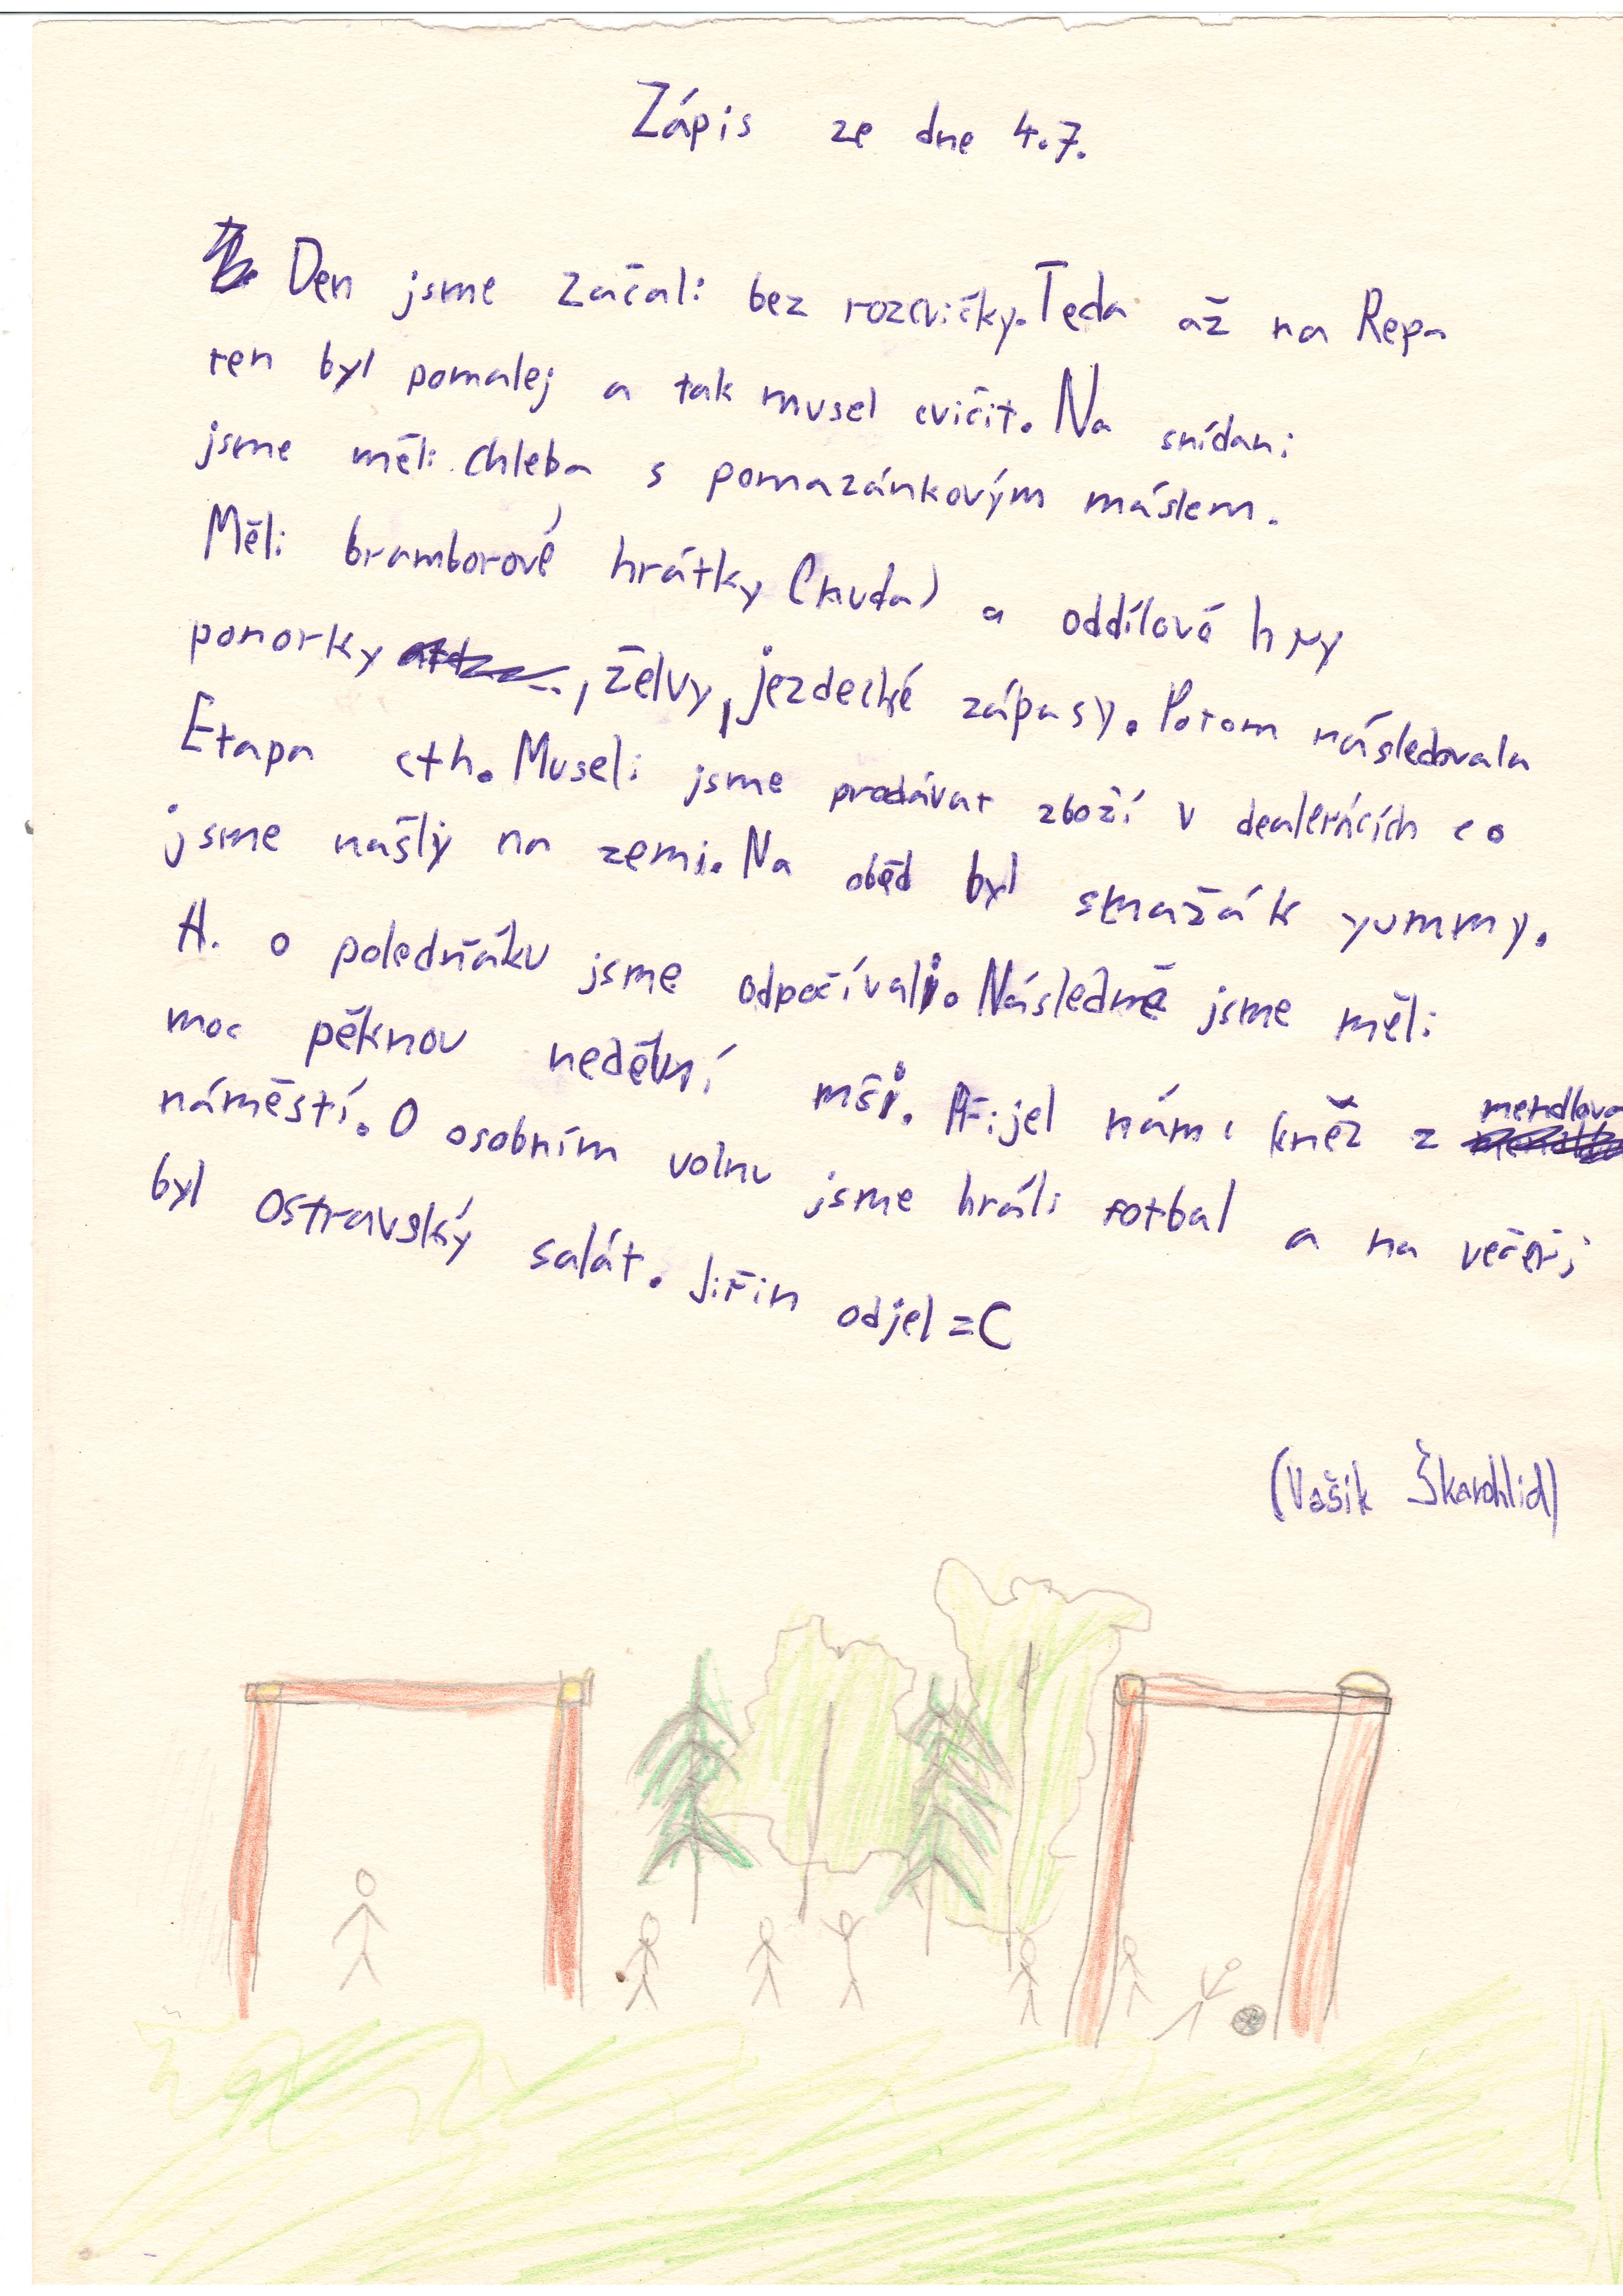 Zápis ze dne 4.7.
Den jsme začali bez rozcvičky. Teda až na Repa
ten byl pomalej a tak musel cvičit. Na snídani
jsme měli chleba s pomazánkovým máslem.
Měli bramborové hrátky (nuda) a oddílové hry
ponorky, želvy, jezdecké zápasy. Potom následovala
Etapa cth. Museli jsme prodávat zboží v dealerácích co
jsme našly na zemi. Na oběd byl smažák yummy.
A. o poledňáku jsme odpočívali. Následně jsme měli
moc pěknou nedělní mši. Přijel nám kněz z mendlova
náměstí. O osobním volnu jsme hráli fotbal a na večeři
byl Ostravský salát. Jiřin odjel =C
(Vašik Škarohlid)